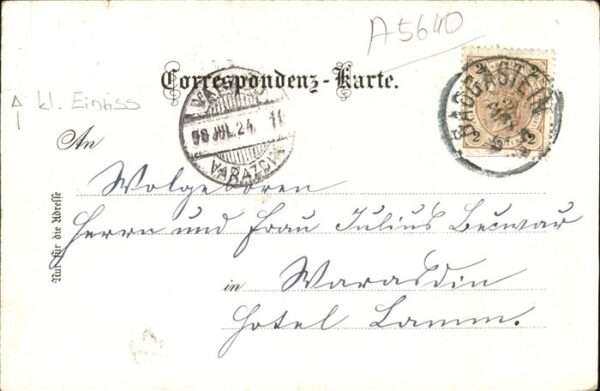 A5640
Correspondenz-Karte.
BADGASTEIN
98 JUL. 24. 11
VARAZSD
kl. Einriss
An
Wolgeboren
Herrn und Frau Julius
in Warasdin
Hotel Lamm.
Nur für die Adresse